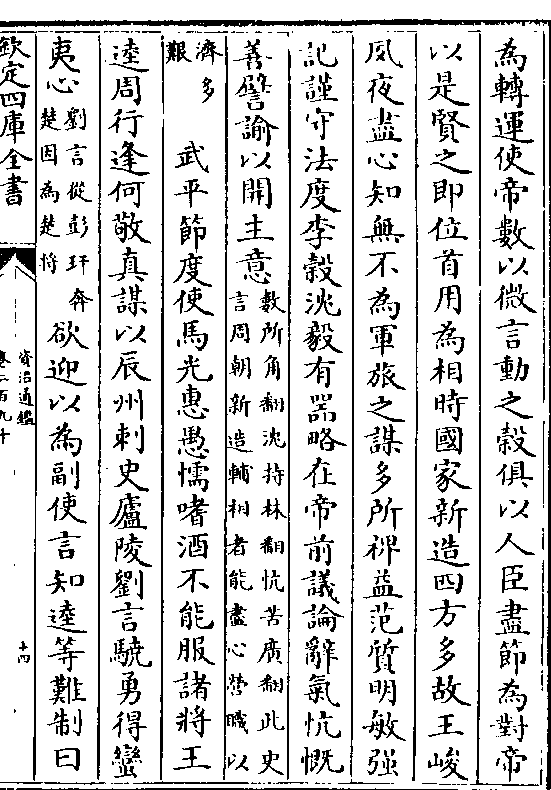 為轉運使帝數以微言動之穀俱以人臣盡節為對帝
以是賢之即位首用為相時國家新造四方多故王峻
夙夜盡心知無不為軍旅之謀多所裨益范質明敏强
記謹守法度李穀沈毅有器略在帝前議論辭氣忼慨
善譬諭以開主意數所角翻沈持林翻忼苦廣翻此史
言周朝新造輔相者能盡心營職以
濟多
艱
武平節度使馬光惠愚懦嗜酒不能服諸將王
逵周行逢何敬真謀以辰州刺史廬陵劉言驍勇得蠻
夷心劉言從彭玕奔
楚因為楚將
欲迎以為副使言知逵等難制曰
欽定四庫全書
資治通鑑
卷二百九十
十四